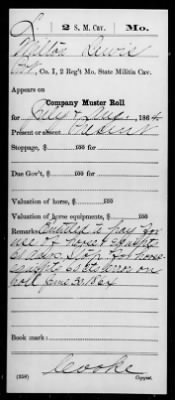 L | 2 S. M. Cav. | Mo.
Milton Lewis
Pvt, Co. I, 2 Reg't Mo. State Militia Cav.
Appears on
Company Muster Roll
for July & Aug, 1864.
Present or absent Present
Stoppage, $ 100
Due Gov't, $ 100
Valuation of horse, $ 100
Valuation of horse equipments, $ 100
Remarks: Entitled to pay for
use of horse & equipts
61 days Stop. for horse
equipts 60 cts error on
roll June 30 1864
Book mark:
Cooke
(358) Copyist.